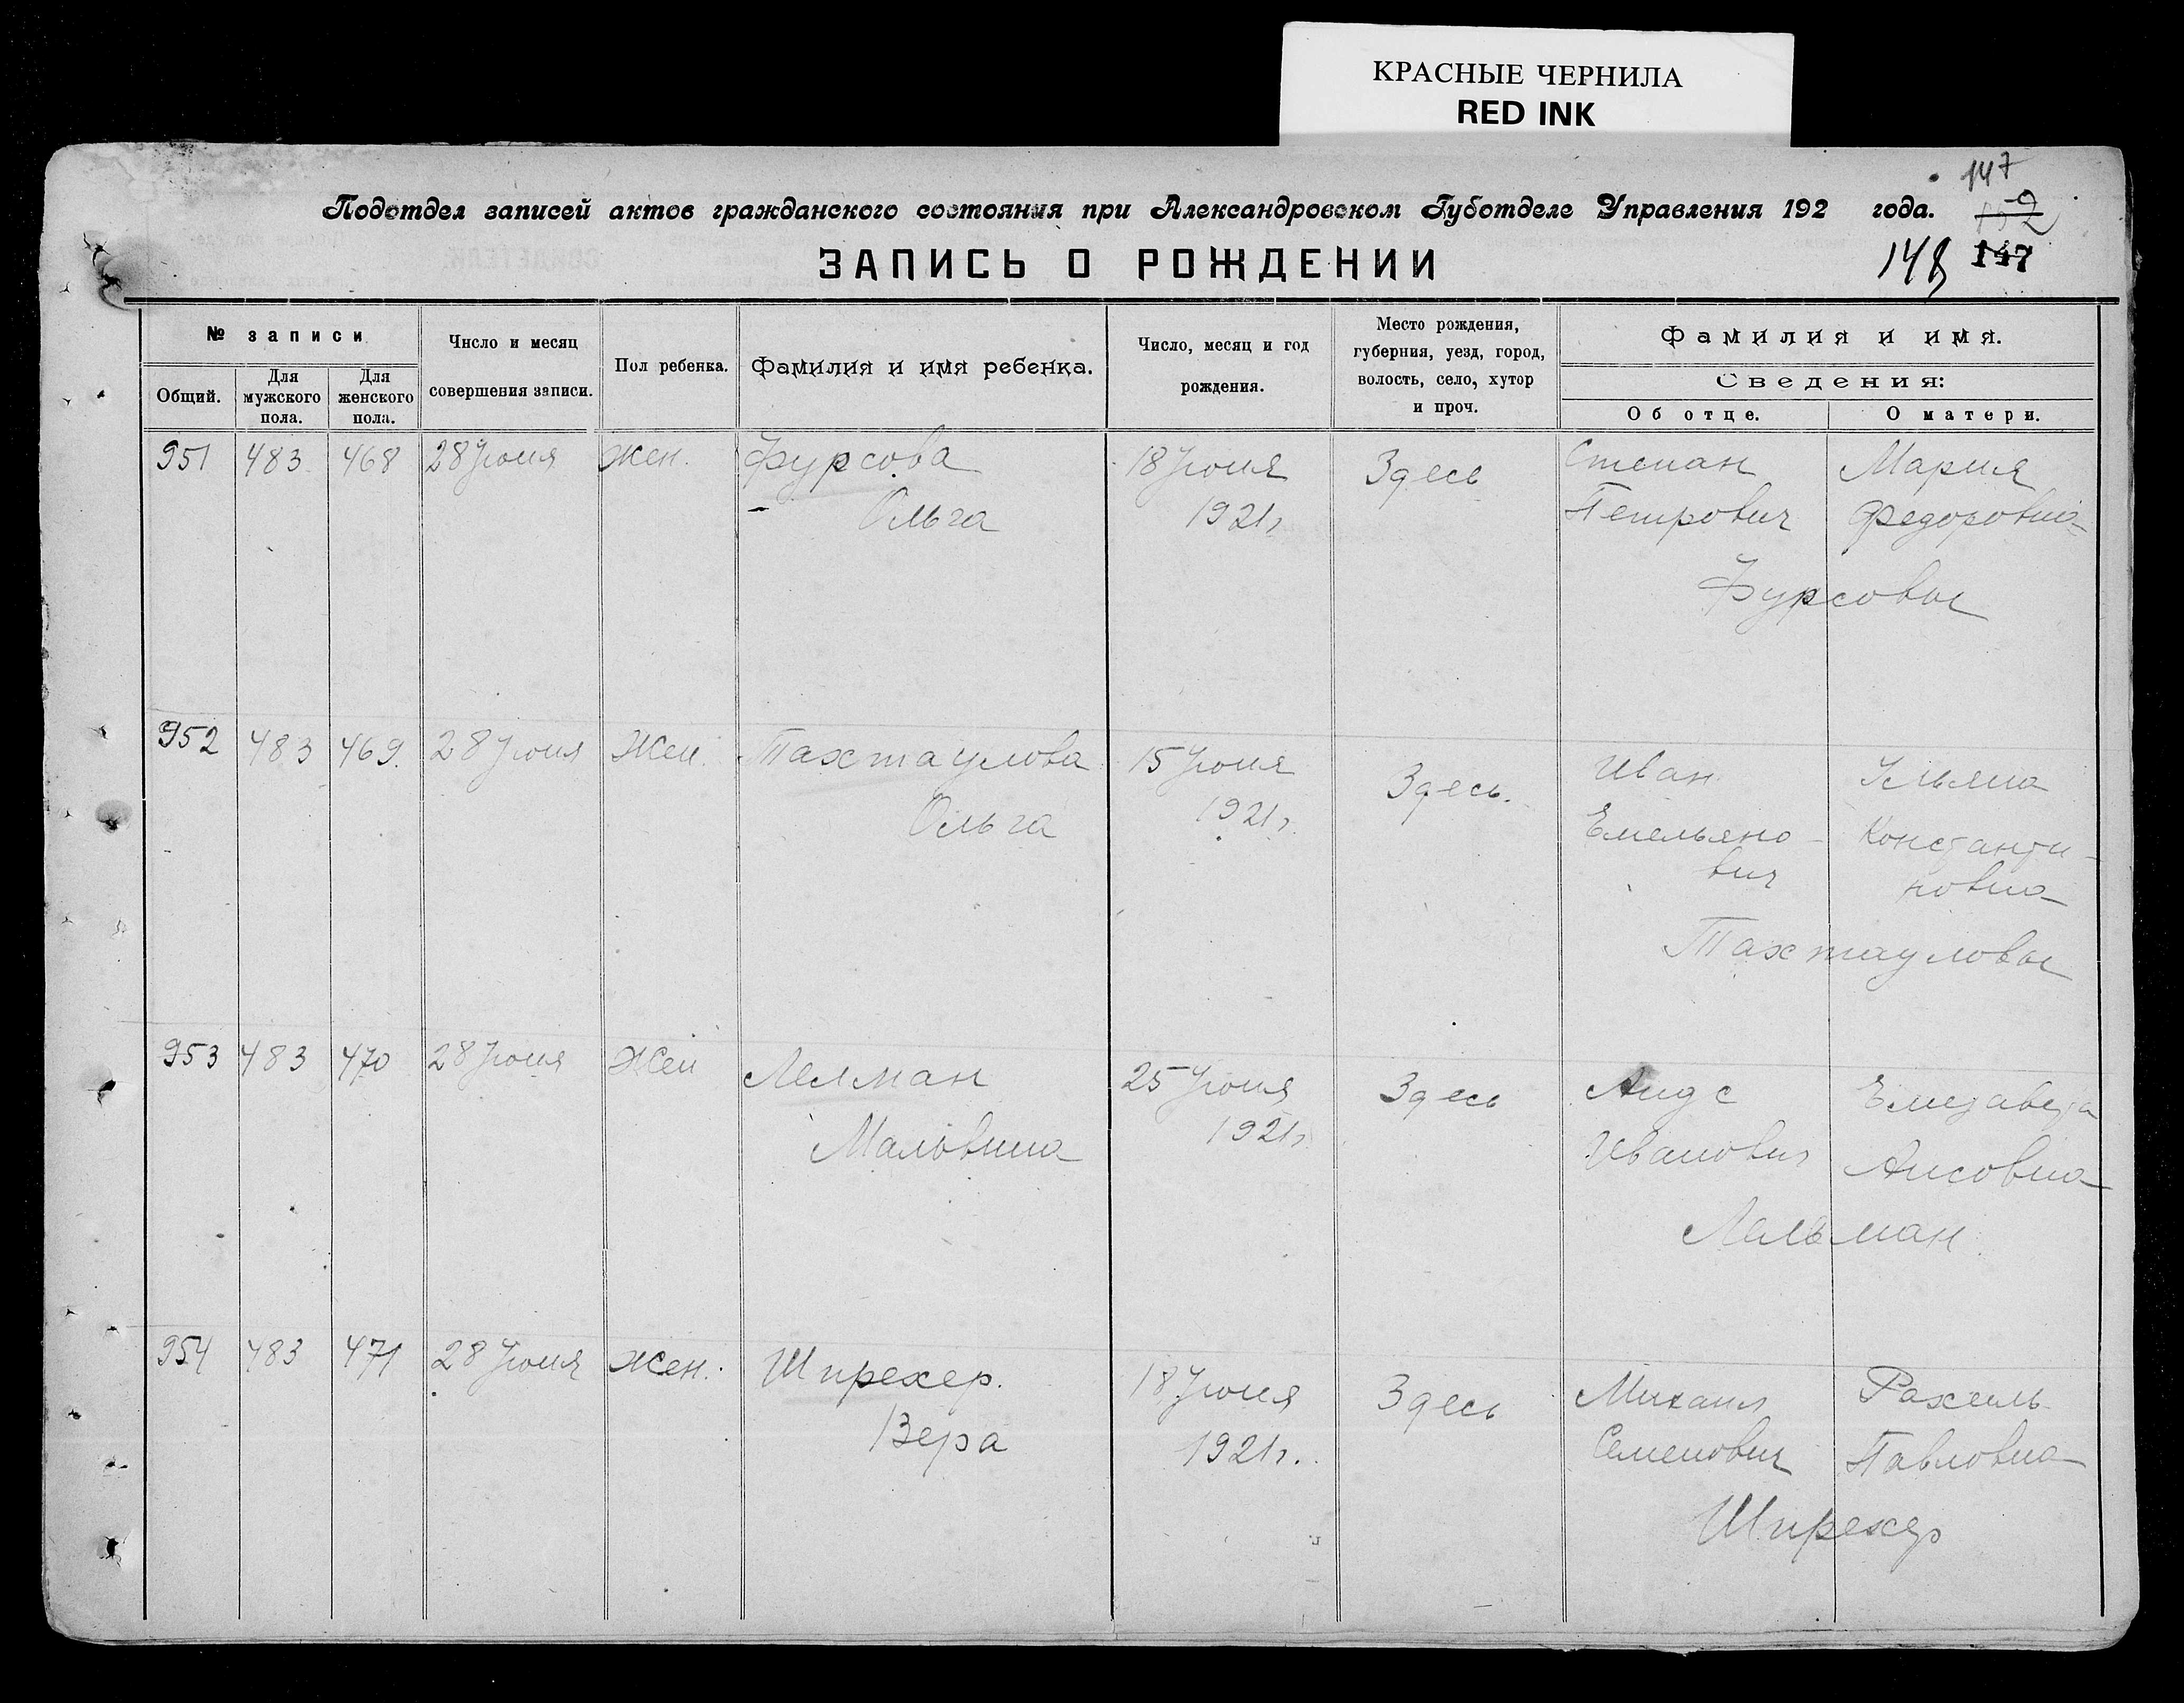 КРАСНЫЕ ЧЕРНИЛА
RED INK
147
Подотдел записей актов гражданского состояния при Александровском Губотделе Управления 192 года.
ЗАПИСЬ О РОЖДЕНИИ
148 147
№ записи
Общий.
Для мужского пола.
Для женского пола.
Число и месяц
совершения записи.
Пол ребенка.
Фамилия и имя ребенка.
Число, месяц и год
рождения.
Место рождения,
губерния, уезд, город,
волость, село, хутор
и проч.
Фамилия и имя.
Сведения:
Об отце. О матери.
951 483 468 28 Июня Жен. Фурсова 18 Июня Здесь Степан Мария
Ольга 1921г. Петрович Федоровна
Фурсовы
952 483 469. 28 Июня Жен. Тахтаулова 15 Июня Здесь. Иван Ульяна
Ольга 1921г. Емельяно- Константи-
вич новна
Тахтауловы
953 483 470 28 Июня Жен Лелман 25 Июня Здесь Елизавета
Мальвина 1921г. Иванович
Лельман
954 483 471 28 Июня Жен. Шпрехер. 18 Июня Здесь Михаил Рахиль
Вера 1921г. Семенович Павловна
Шпрехер